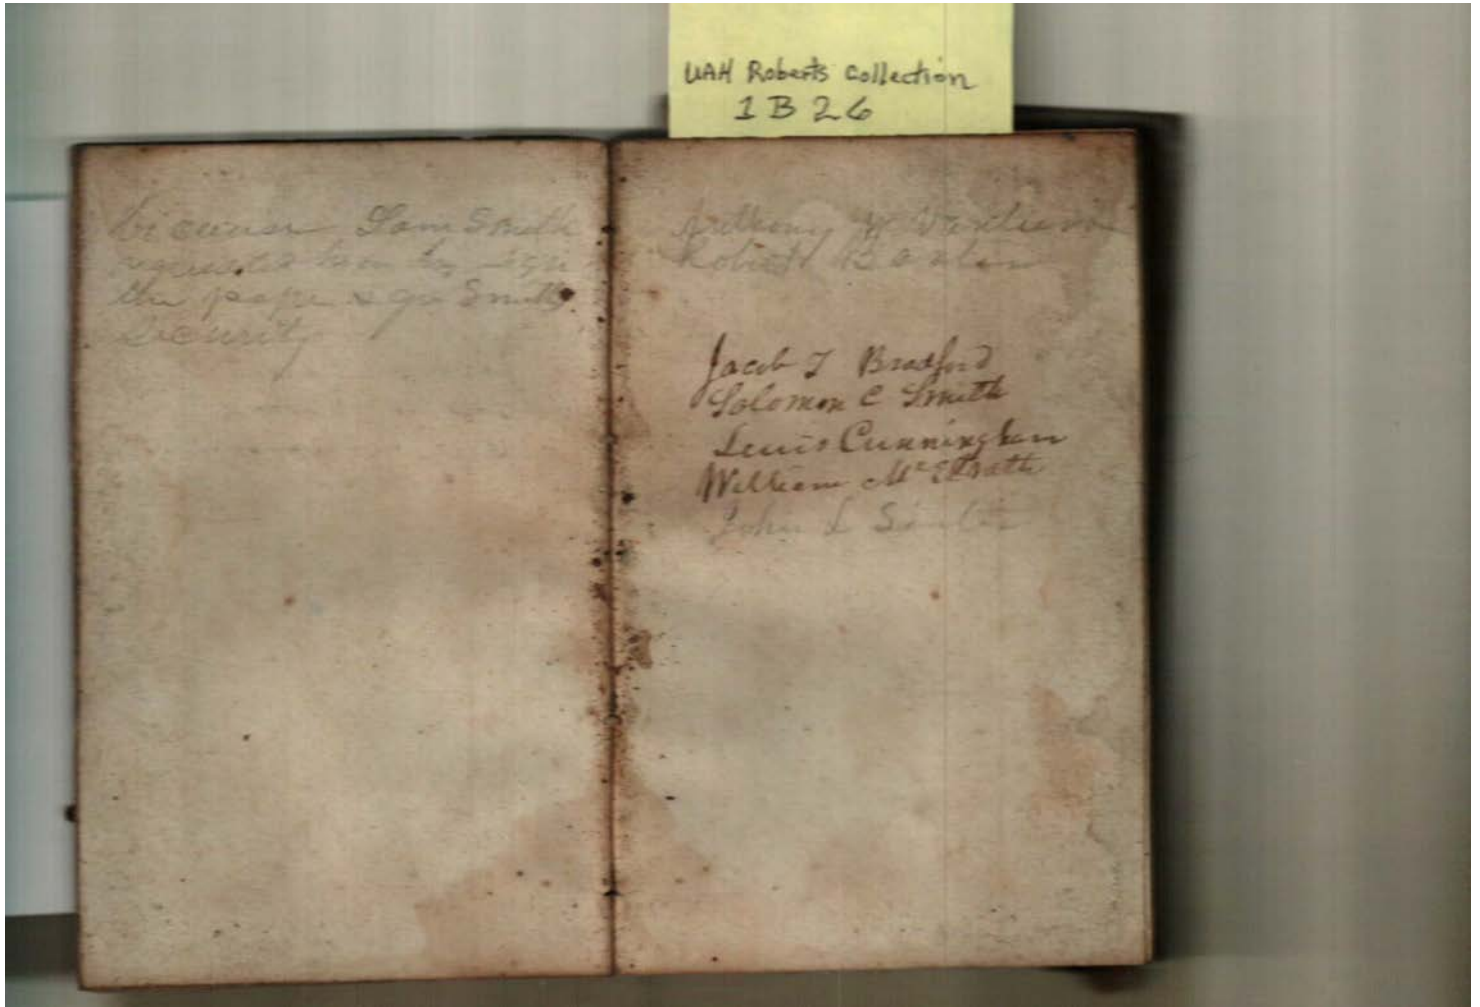 UAH Roberts Collection
1 B 26
because Sam Smith
requested him to sign
the paper & go Smith
Security
Anthony W
Robert
Jacob T Bradford
Solomon C Smith
Lewis Cunningham
William McElrath
John L